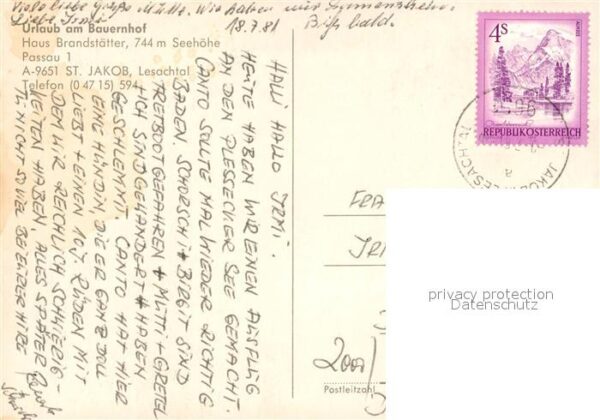 Viele liebe Grüße
18.7.81
Bis bald.
Liebe Irmi
Urlaub am Bauernhof
Haus Brandstätter, 744 m Seehöhe
Passau 1
A-9651 ST. JAKOB, Lesachtal
Telefon (0 47 15) 594
HALLI HALLO IRMI.
HEUTE HABEN WIR EINEN AUSFLUG
AN DEN PLESSECKER SEE GEMACHT.
CANTO SOLLTE MAL WIEDER RICHTIG
BADEN. SCHORSCHI + BIRGIT SIND
TRETBOOTGEFAHREN + MUTTI + GRETEL
+ ICH SIND GEWANDERT + HABEN
GESCHLEMMT. CANTO HAT HIER
EINE HÜNDIN, DIE ER GANZ DOLL
LIEBT + EINEN 10J. RÜDEN MIT
DEM WIR REICHLICH SCHWIERIG-
KEITEN HABEN, ALLES SPÄTER
NICHT SO VIEL BEI EURER HITZE
4S
REPUBLIK ÖSTERREICH
FRA
IR
2000
Postleitzahl
privacy protection
Datenschutz